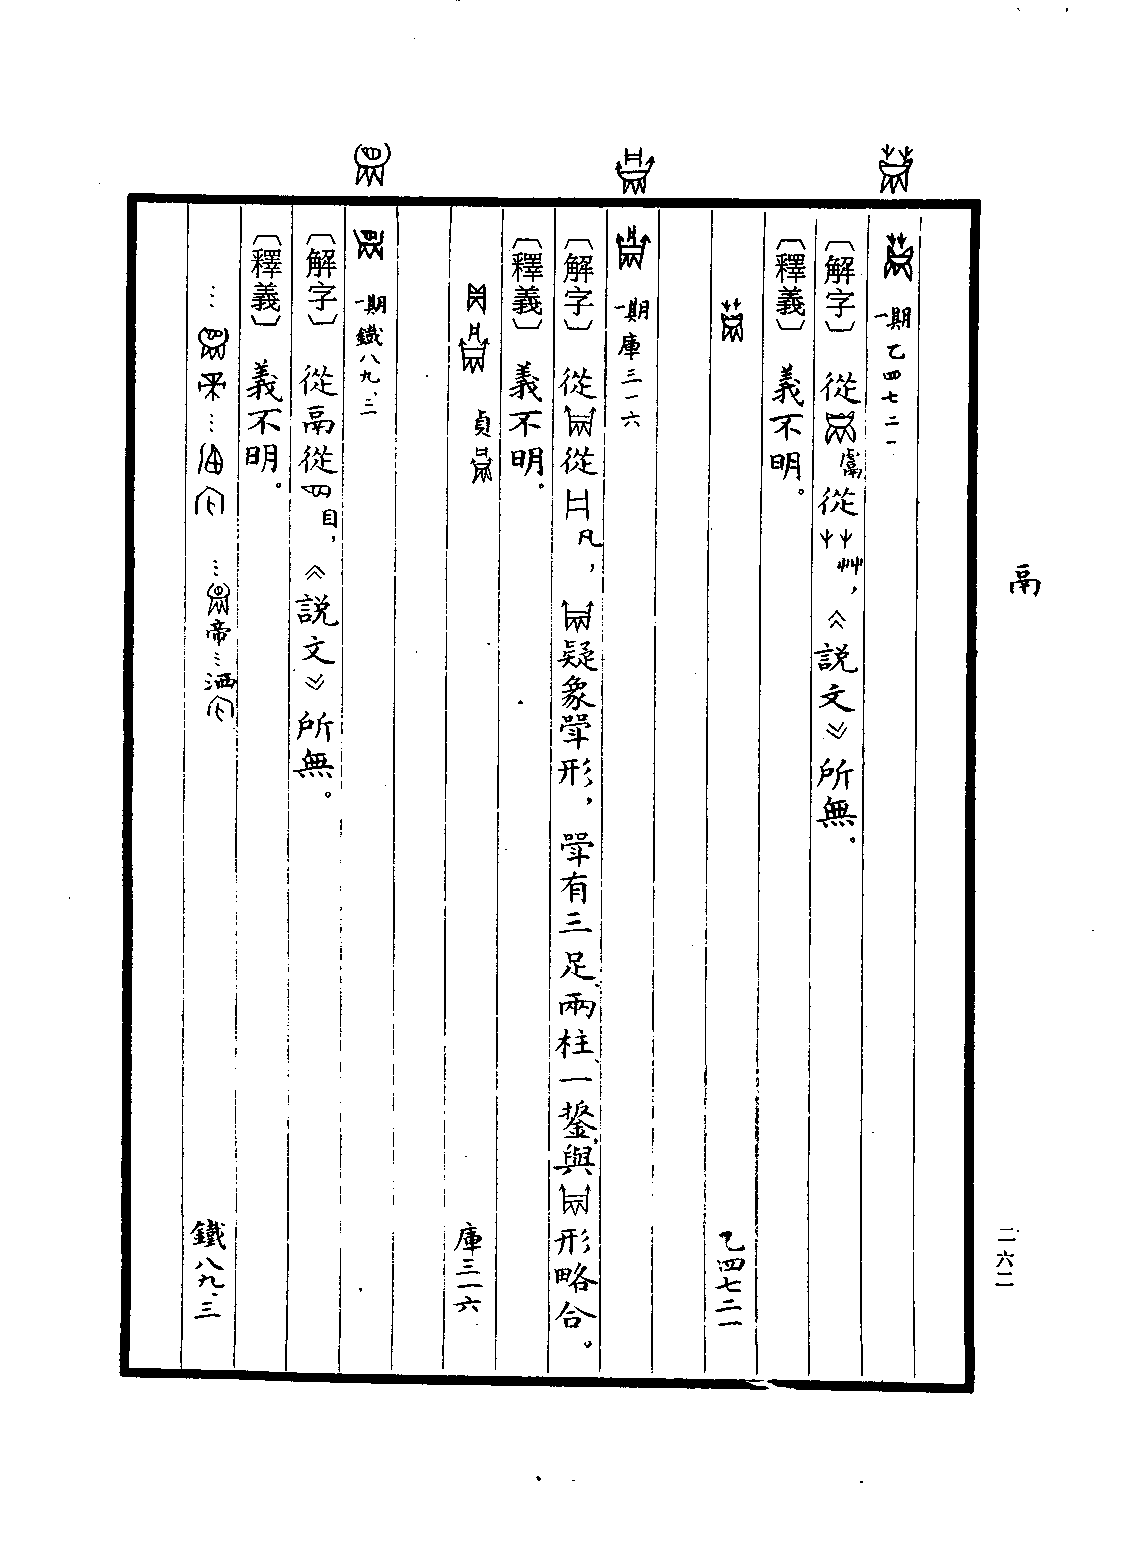 鬲
二六二
一期 乙四七二一
〔解字〕 從鬳從艸，《説文》所無。
〔釋義〕 義不明。
乙四七二一
一期 庫三一六
〔解字〕 從從凡，疑象斝形，斝有三足兩柱一鋬，與形略合。
〔釋義〕 義不明。
貞 庫三一六
一期 鐵八九、三
〔解字〕 從鬲從目，《説文》所無。
〔釋義〕 義不明。
…… …… …帝…洒 鐵八九、三